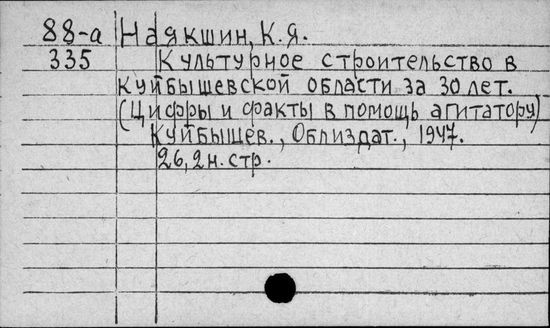 88-а Наякшин, К.Я.
335 Культурное строительство в
Куйбышевской области за 30 лет.
(Цифры и факты в помощь агитатору)
Куйбышев., Облиздат., 1947.
26, 2 н. стр.